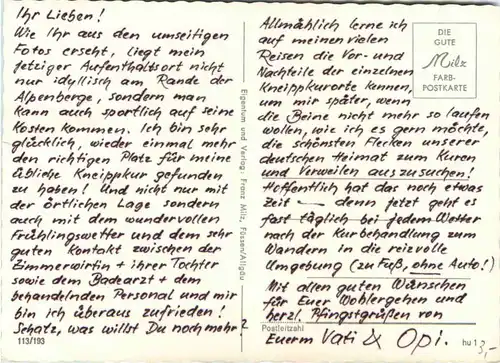 Ihr Lieben!
Wie Ihr aus den umseitigen
Fotos erseht, liegt mein
jetziger Aufenthaltsort nicht
nur idyllisch am Rande der
Alpenberge, sondern man
kann auch sportlich auf seine
Kosten kommen. Ich bin sehr
glücklich, wieder einmal mehr
den richtigen Platz für meine
übliche Kneippkur gefunden
zu haben! Und nicht nur mit
der örtlichen Lage sondern
auch mit dem wundervollen
Frühlingswetter und dem sehr
guten Kontakt zwischen der
Zimmerwirtin + ihrer Tochter
sowie dem Badearzt + dem
behandelnden Personal und mir
bin ich überaus zufrieden!
Schatz, was willst Du noch mehr?
113/193
Eigentum und Verlag: Franz Milz, Füssen/Allgäu
Allmählich lerne ich
auf meinen vielen
Reisen die Vor- und
Nachteile der einzelnen
Kneippkurorte kennen,
um mir später, wenn
die Beine nicht mehr so laufen
wollen, wie ich es gern möchte,
die schönsten Flecken unserer
deutschen Heimat zum Kuren
und Verweilen auszusuchen!
Hoffentlich hat das noch etwas
Zeit – denn jetzt geht es
fast täglich bei jedem Wetter
nach der Kurbehandlung zum
Wandern in die reizvolle
Umgebung (zu Fuß, ohne Auto!)
Mit allen guten Wünschen
für Euer Wohlergehen und
herzl. Pfingstgrüßen von
Postleitzahl
Euerm Vati & Opi.
hu 1
3,-
DIE
GUTE
Milz
FARB-
POSTKARTE